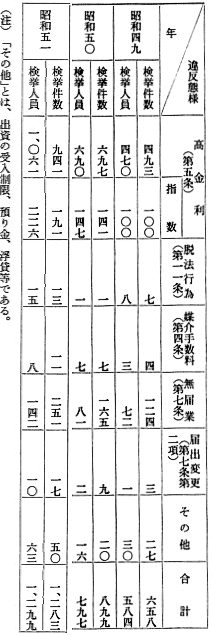 年 違反態様 高金利(第五条) 指数 脱法行為(第一一条) 媒介手数料(第四条) 無届業(第七条) 届出変更(第七条第二項) その他 合計
昭和四九 検挙件数 四九三 一〇〇 七 四 一二四 三 二七 六五八
検挙人員 四七〇 一〇〇 八 三 七二 一 三〇 五八四
昭和五〇 検挙件数 六九七 一四一 一 七 一六五 九 二〇 八九九
検挙人員 六九〇 一四七 一 七 八一 二 一六 七九七
昭和五一 検挙件数 九四一 一九一 一三 一一 二五一 一七 五〇 一、二八三
検挙人員 一、〇六一 二二六 一五 八 一四二 一〇 六三 一、二九九
(注) 「その他」とは、出資の受入制限、預り金、浮貸等である。